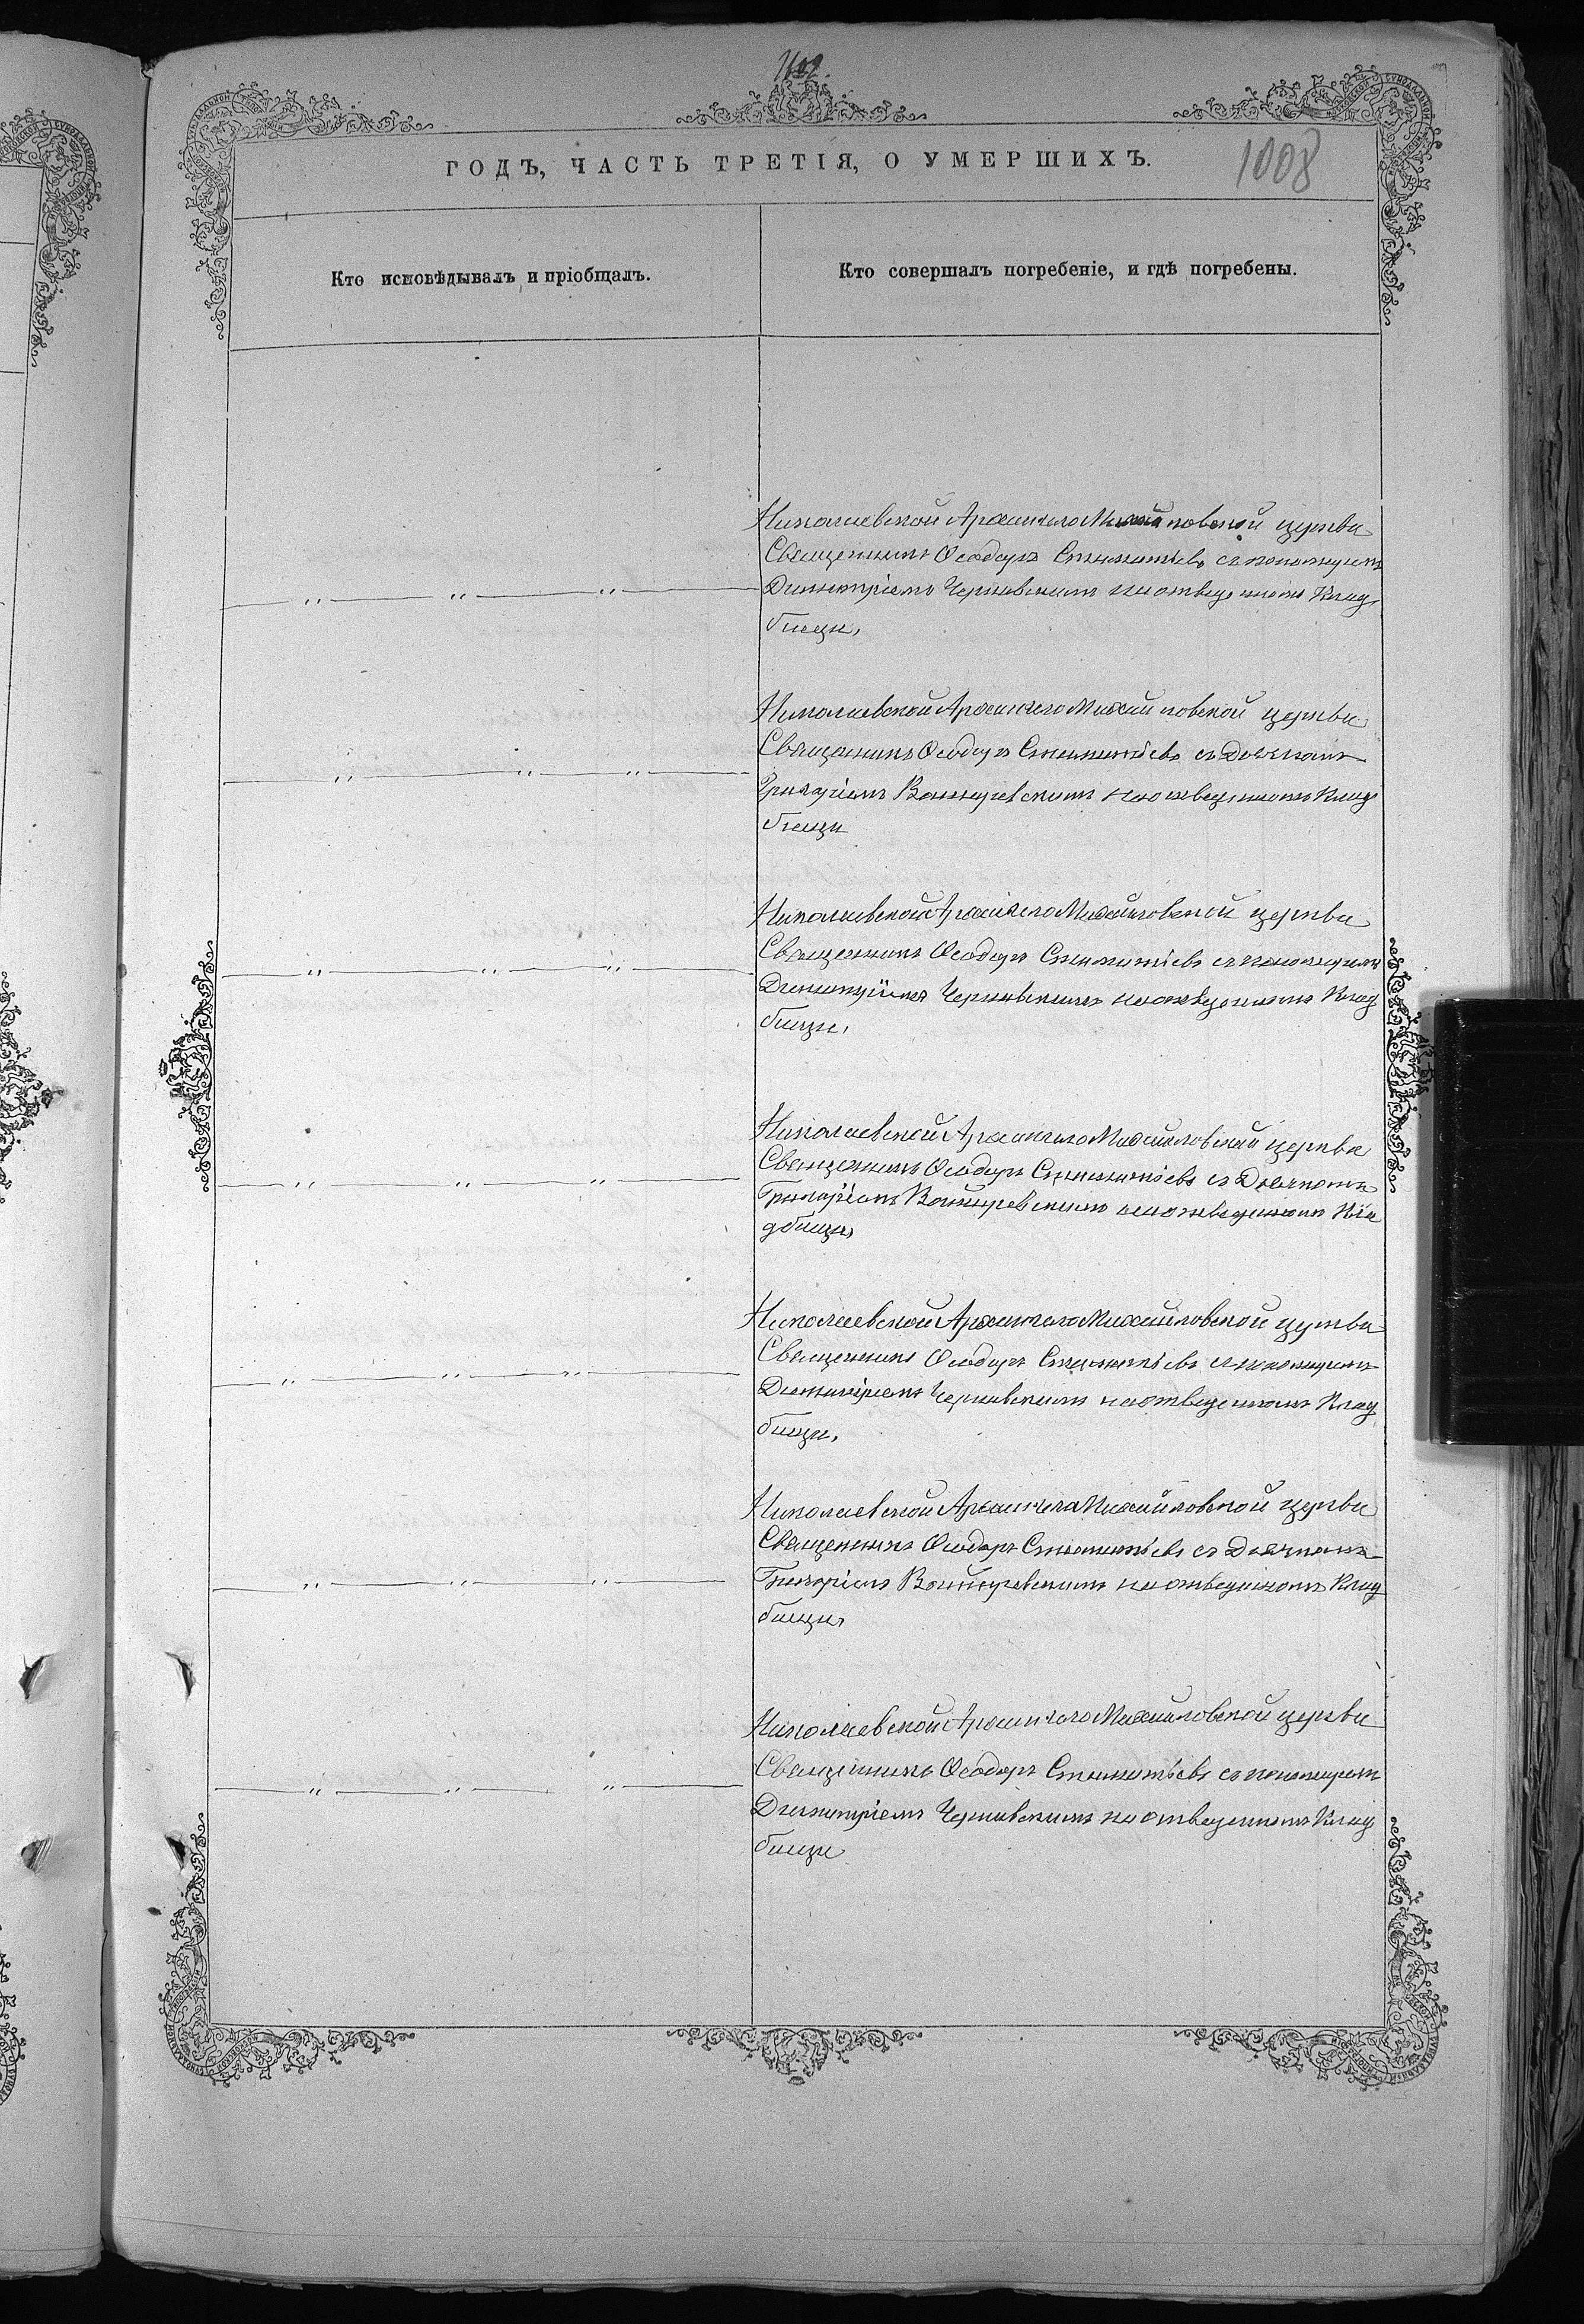 1008
ГОДЪ, ЧАСТЬ ТРЕТІЯ, О УМЕРШИХЪ.
Кто исповѣдывалъ и пріобщалъ.
Кто совершалъ погребеніе, и гдѣ погребены.
Николаевской Архангело Михайловской церкви
Священникъ Ѳеодоръ съ пономаремъ
Димитріемъ Чернявскимъ на отведенномъ Клад
бищи,
Николаевской Архангело Михайловской церкви
Священникъ Ѳеодоръ съ Дьячкомъ
Григоріемъ на отведенномъ Клад
бищи
Николаевской Архангело Михайловской церкви
Священникъ Ѳеодоръ съ пономаремъ
Димитріемъ Чернявскимъ на отведенномъ Клад
бищи,
Николаевской Архангело Михайловской церкви
Священникъ Ѳеодоръ съ Дьячкомъ
Григоріемъ на отведенномъ Кла
дбищи,
Николаевской Архангело Михайловской церкви
Священникъ Ѳеодоръ съ пономаремъ
Димитріемъ Чернявскимъ на отведенномъ Клад
бищи,
Николаевской Архангело Михайловской церкви
Священникъ Ѳеодоръ съ Дьячкомъ
Григоріемъ на отведенномъ Клад
бищи,
Николаевской Архангело Михайловской церкви
Священникъ Ѳеодоръ съ пономаремъ
Димитріемъ Чернявскимъ на отведенномъ Клад
бищи